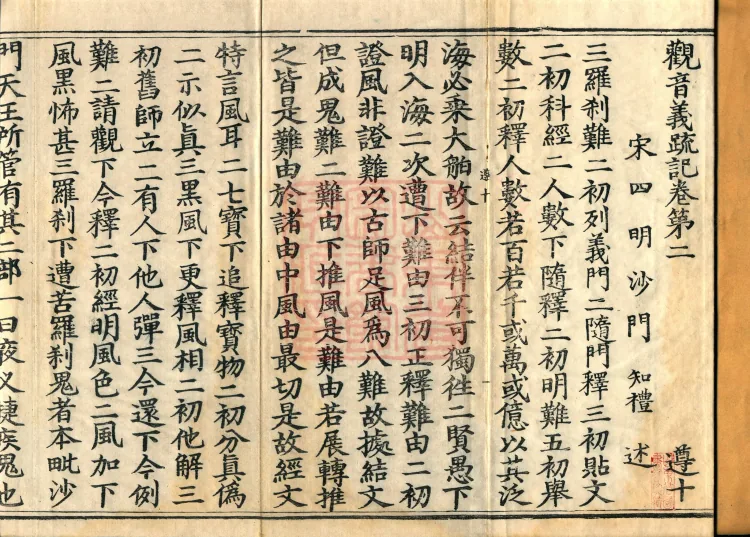 觀音義疏記卷第二 遵十
宋四明沙門 知禮 述
三羅刹難二初列義門二隨門釋三初貼文
二初科經二人數下隨釋二初明難五初舉
數二初釋人數若百若千或萬或億以其泛
海必乘大舶故云結伴不可獨徃二賢愚下
遵十
明入海二次遭下難由三初正釋難由二初
證風非證難以古師足風爲八難故據結文
但成鬼難二難由下推風是難由若展轉推
之皆是難由於諸由中風由最切是故經文
特言風耳二七寶下追釋寶物二初分眞僞
二示似眞三黑風下更釋風相二初他解三
初舊師立二有人下他人彈三今還下今例
難二請觀下今釋二初經明風色二風加下
風黑怖甚三羅刹下遭苦羅刹鬼者本毗沙
門天王所管有其二部一曰夜义捷疾鬼也